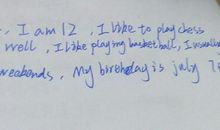 ., I am 12, I like to play chess
well, I like playing basketball, I usually
weekends, My birthday is july 7